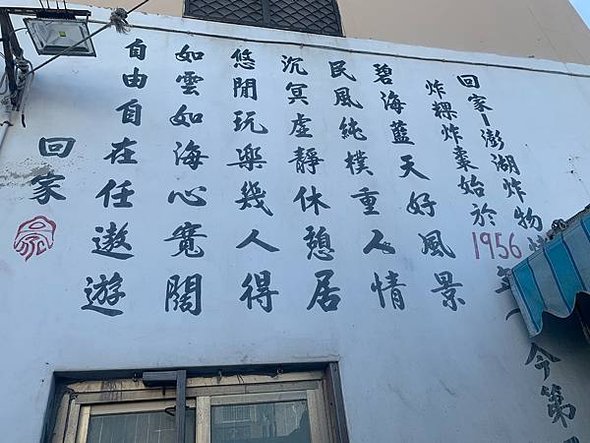 回家－澎湖炸物
炸粿炸棗始於1956年
今第
碧海藍天好風景
民風純樸重人情
沉冥虛靜休憩居
悠閒玩樂幾人得
如雲如海心寬闊
自由自在任遨遊
回家